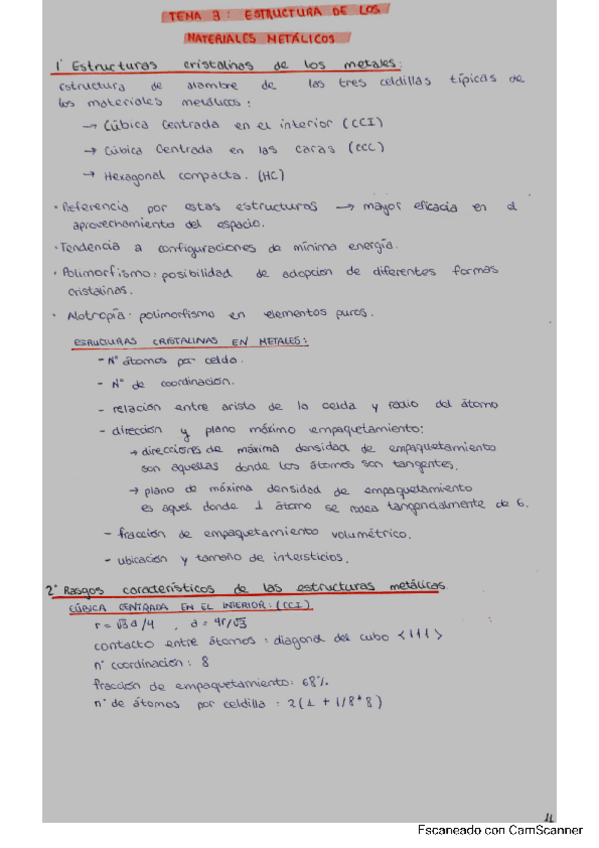 TEMA 3: ESTRUCTURA DE LOS
MATERIALES METÁLICOS
1º Estructuras cristalinas de los metales:
Estructura de alambre de las tres celdillas típicas de
los materiales metálicos:
→ Cúbica Centrada en el interior (CCI)
→ Cúbica Centrada en las caras (CCC)
→ Hexagonal compacta. (HC)
· Referencia por estas estructuras → mayor eficacia en el
aprovechamiento del espacio.
· Tendencia a configuraciones de mínima energía.
· Polimorfismo: posibilidad de adopcion de diferentes formas
cristalinas.
· Alotropía: polimorfismo en elementos puros.
ESRUCTURAS CRISTALINAS EN METALES:
- Nº átomos por celda.
- Nº de coordinación.
- relación entre arista de la celda y radio del átomo
- dirección y plano máximo empaquetamiento:
→ direcciones de máxima densidad de empaquetamiento
son aquellas donde los átomos son tangentes.
→ plano de máxima densidad de empaquetamiento
es aquel donde 1 átomo se rodea tangencialmente de 6.
- fracción de empaquetamiento volumétrico.
- ubicación y tamaño de intersticios.
2º Rasgos característicos de las estructuras metálicas
CÚBICA CENTRADA EN EL INTERIOR: (CCI)
r = √3a/4 , a = 4r/√3
contacto entre átomos: diagonal del cubo <111>
nº coordinacion: 8
fracción de empaquetamiento: 68%
nº de átomos por celdilla: 2(1 + 1/8*8)
Escaneado con CamScanner